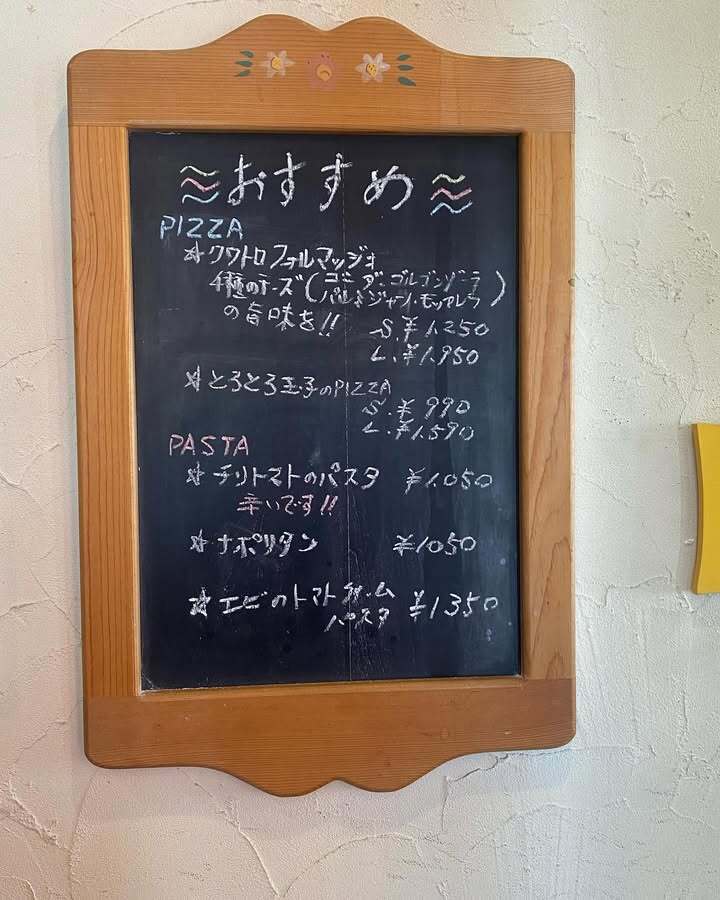 おすすめ
PIZZA
☆クワトロフォルマッジョ
4種のチーズ(ゴーダ・ゴルゴンゾーラ
パルメジャーノ・モッツァレラ)
の旨味を!!
S.¥1.250
L.¥1.950
☆とろとろ玉子のPIZZA
S.¥990
L.¥1.590
PASTA
☆チリトマトのパスタ ¥1.050
辛いです!!
☆ナポリタン ¥1050
☆エビのトマトクリーム
パスタ ¥1350